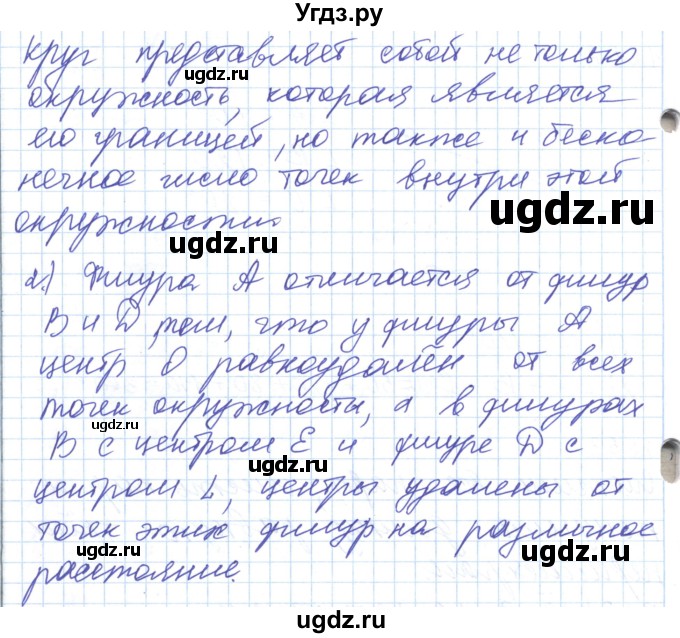 Угдз.ру
круг представляет собой не только
ugdz.ru
окружность, которая является
его границей, но также и беско
нечное число точек внутри этой
ugdz.ru
окружности.
ugdz.ru
ugdz.ru
2) Фигура А отличается от фигур
В и D тем, что у фигуры А
центр О равноудалён от всех
точек окружносты, а в фигурах
ugdz.ru
В с центром Е и фигуре D с
ugdz.ru
центром L, центры удалены от
точек этих фигур на различное
ugdz.ru
ugdz.ru
расстояние.